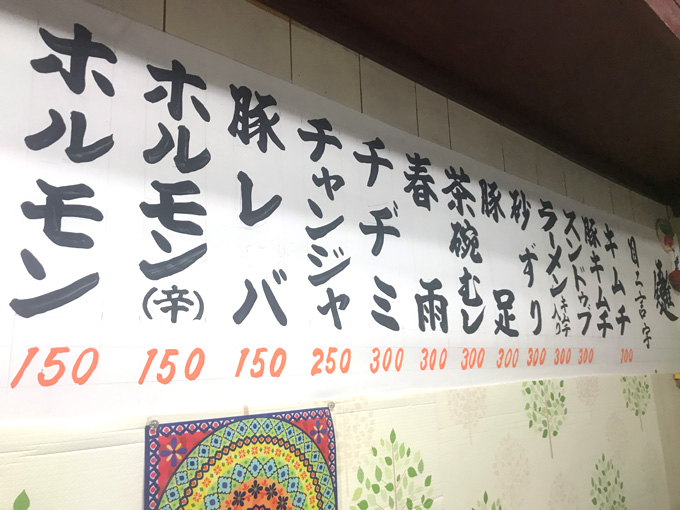 キムチ
200
豚キムチ
スンドゥブ
300
ラーメン
キムチ入り
300
砂ずり
300
豚足
300
茶碗むし
300
春雨
300
チヂミ
300
チャンジャ
250
豚レバ
150
ホルモン(辛)
150
ホルモン
150